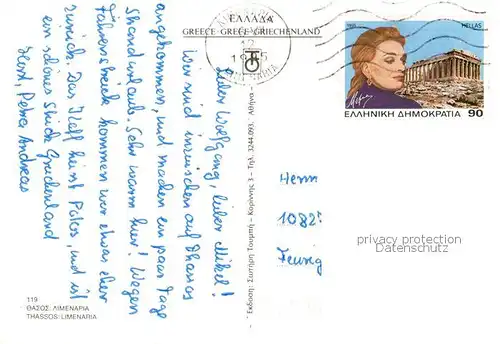 ΕΛΛΑΔΑ
GREECE · GRECE · GRIECHENLAND
1995
HELLAS
ΕΛΛΗΝΙΚΗ ΔΗΜΟΚΡΑΤΙΑ 90
Lieber Wolfgang, lieber Mikel!
Wir sind inzwischen auf Thassos
angekommen, und machen ein paar Tage
Strandurlaub. Sehr warm hier! Wegen
Fährenstreik kommen wir etwas eher
zurück. Das Kaff heisst Potos, und ist
ein schönes Stück Griechenland
Petra, Andreas
Herrn
1082
privacy protection
www.ansichtskartenversand.com
Έκδοση: Σωτήρη Τουμπή - Κορίννης 3 - Τηλ. 3244.093. Αθήνα
119
ΘΑΣΟΣ: ΛΙΜΕΝΑΡΙΑ
THASSOS: LIMENARIA